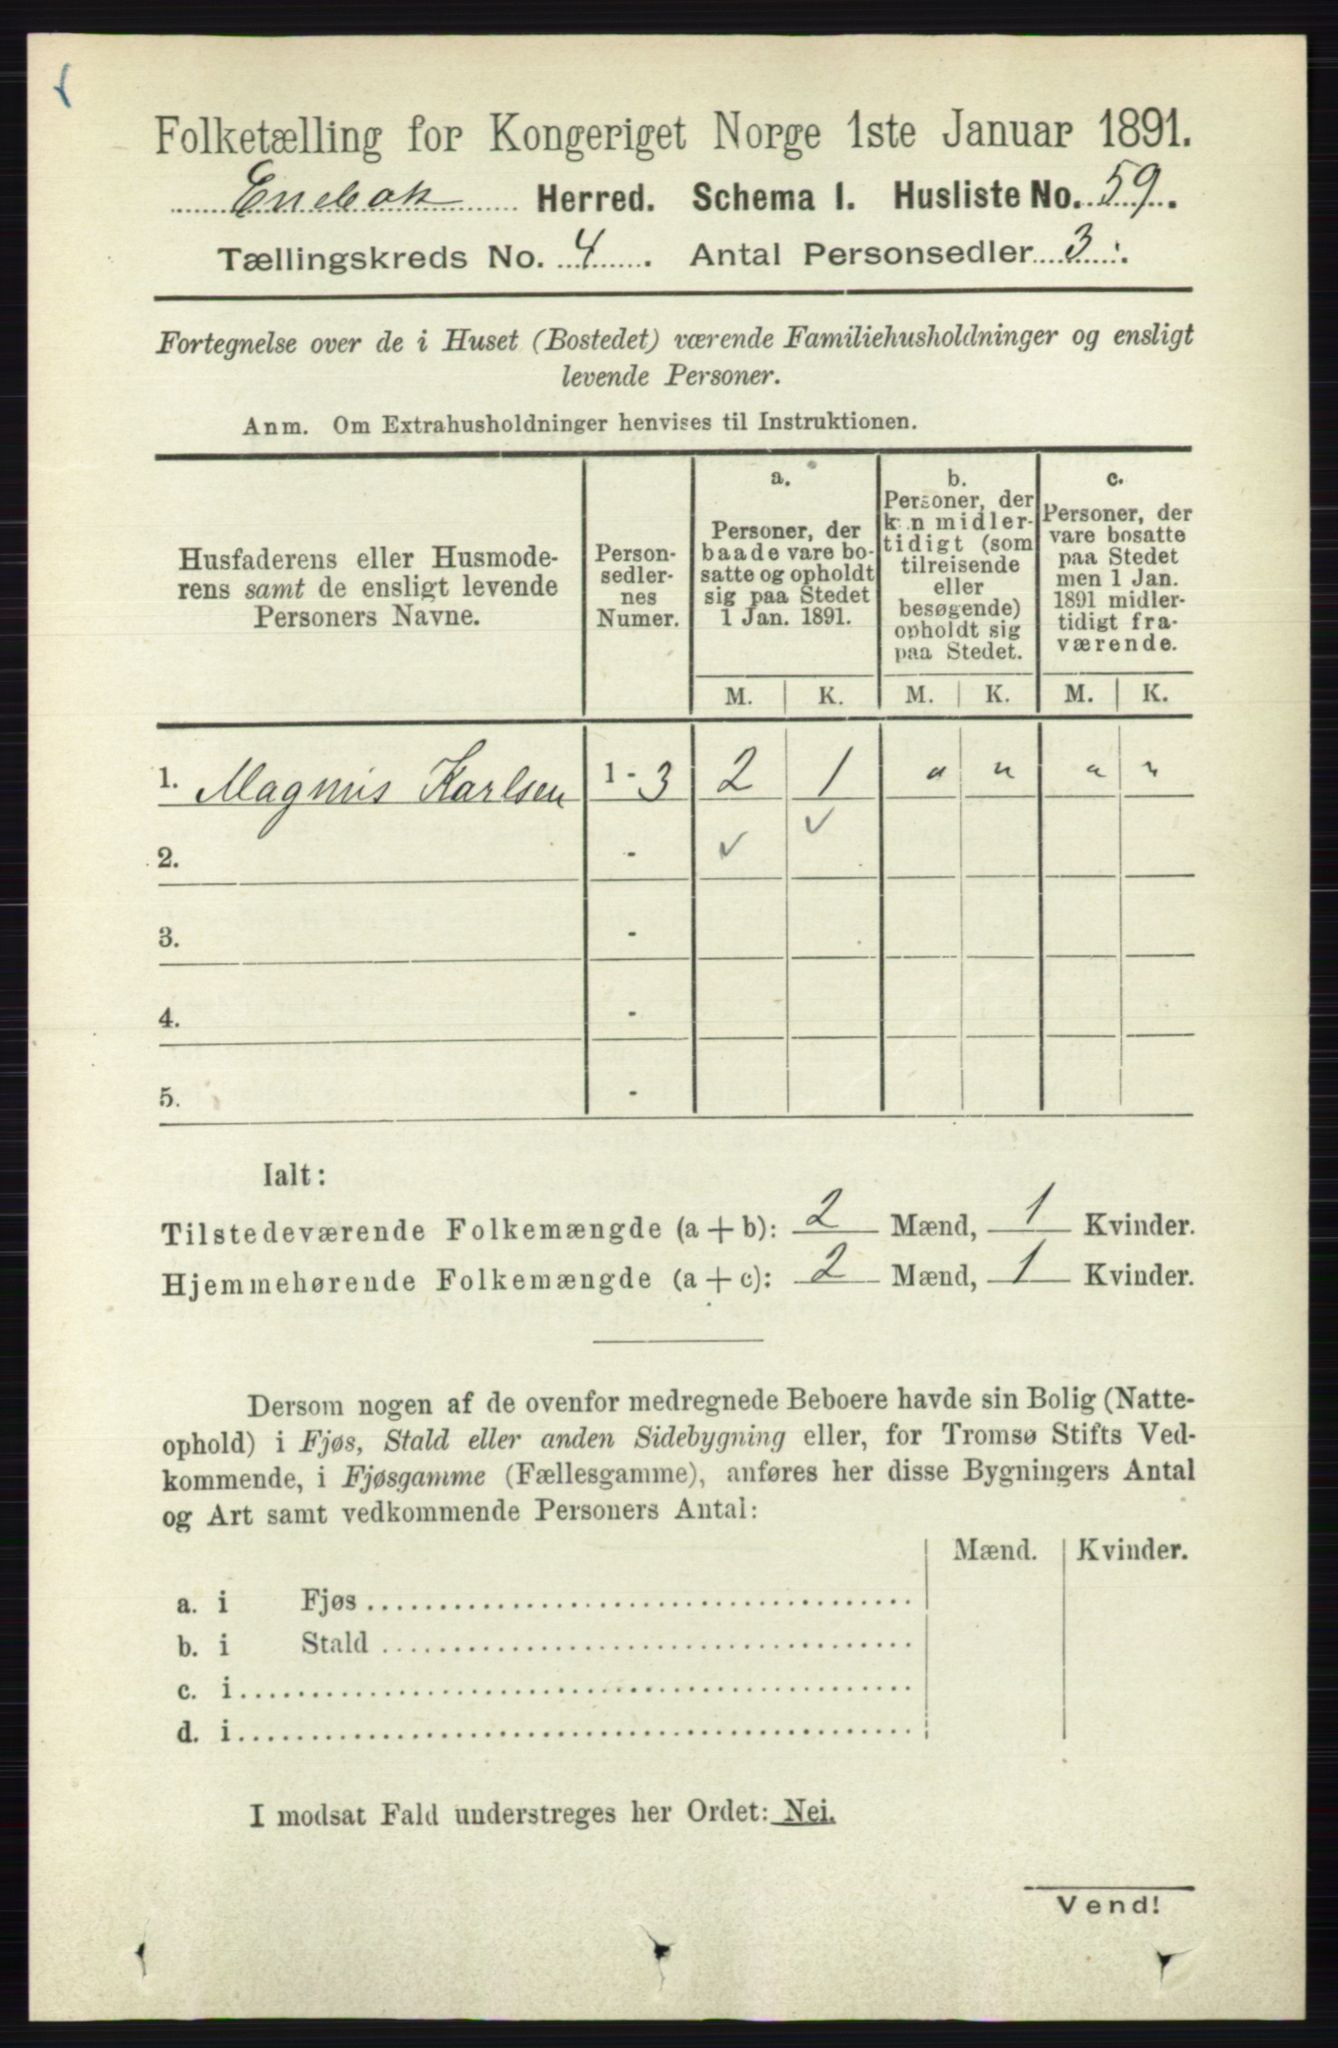 Folketælling for Kongeriget Norge 1ste Januar 1891.
Enebak Herred. Schema I. Husliste No. 59.
Tællingskreds No. 4. Antal Personsedler 3.
Fortegnelse over de i Huset (Bostedet) værende Familiehusholdninger og ensligt
levende Personer.
Anm. Om Extrahusholdninger henvises til Instruktionen.
Husfaderens eller Husmode-
rens samt de ensligt levende
Personers Navne.
Person-
sedler-
nes
Numer.
a.
Personer, der
baade vare bo-
satte og opholdt
sig paa Stedet
1 Jan. 1891.
b.
Personer, der
kun midler-
tidigt (som
tilreisende
eller
besøgende)
opholdt sig
paa Stedet.
c.
Personer, der
vare bosatte
paa Stedet
men 1 Jan.
1891 midler-
tidigt fra-
værende.
M. K. M. K. M. K.
1. Magnus Karlsen 1 - 3 2 1 " " " "
2. - ✓ ✓
3. -
4. -
5. -
Ialt:
Tilstedeværende Folkemængde (a + b): 2 Mænd, 1 Kvinder.
Hjemmehørende Folkemængde (a + c): 2 Mænd, 1 Kvinder.
Dersom nogen af de ovenfor medregnede Beboere havde sin Bolig (Natte-
ophold) i Fjøs, Stald eller anden Sidebygning eller, for Tromsø Stifts Ved-
kommende, i Fjøsgamme (Fællesgamme), anføres her disse Bygningers Antal
og Art samt vedkommende Personers Antal:
Mænd. Kvinder.
a. i Fjøs
b. i Stald
c. i
d. i
I modsat Fald understreges her Ordet: Nei.
Vend!